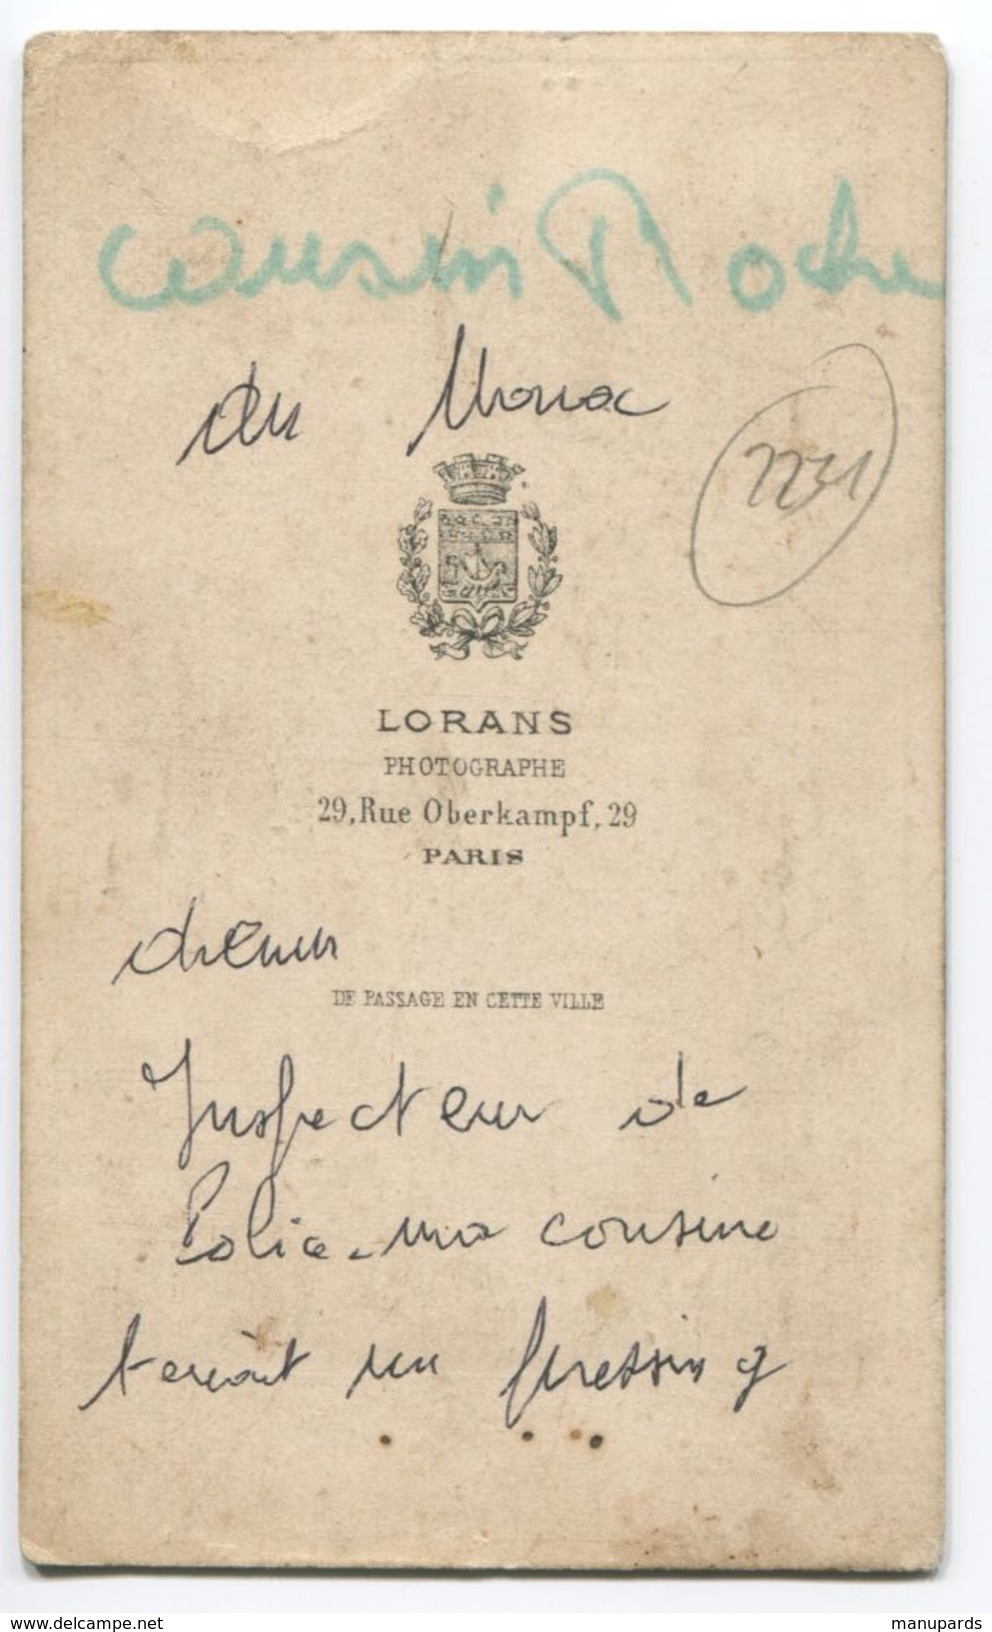 cousin Roche
du Monac
2231
LORANS
PHOTOGRAPHE
29, Rue Oberkampf, 29
PARIS
devenu
DE PASSAGE EN CETTE VILLE
Inspecteur de
Police - ma cousine
tenait un pressing
www.delcampe.net
manupards